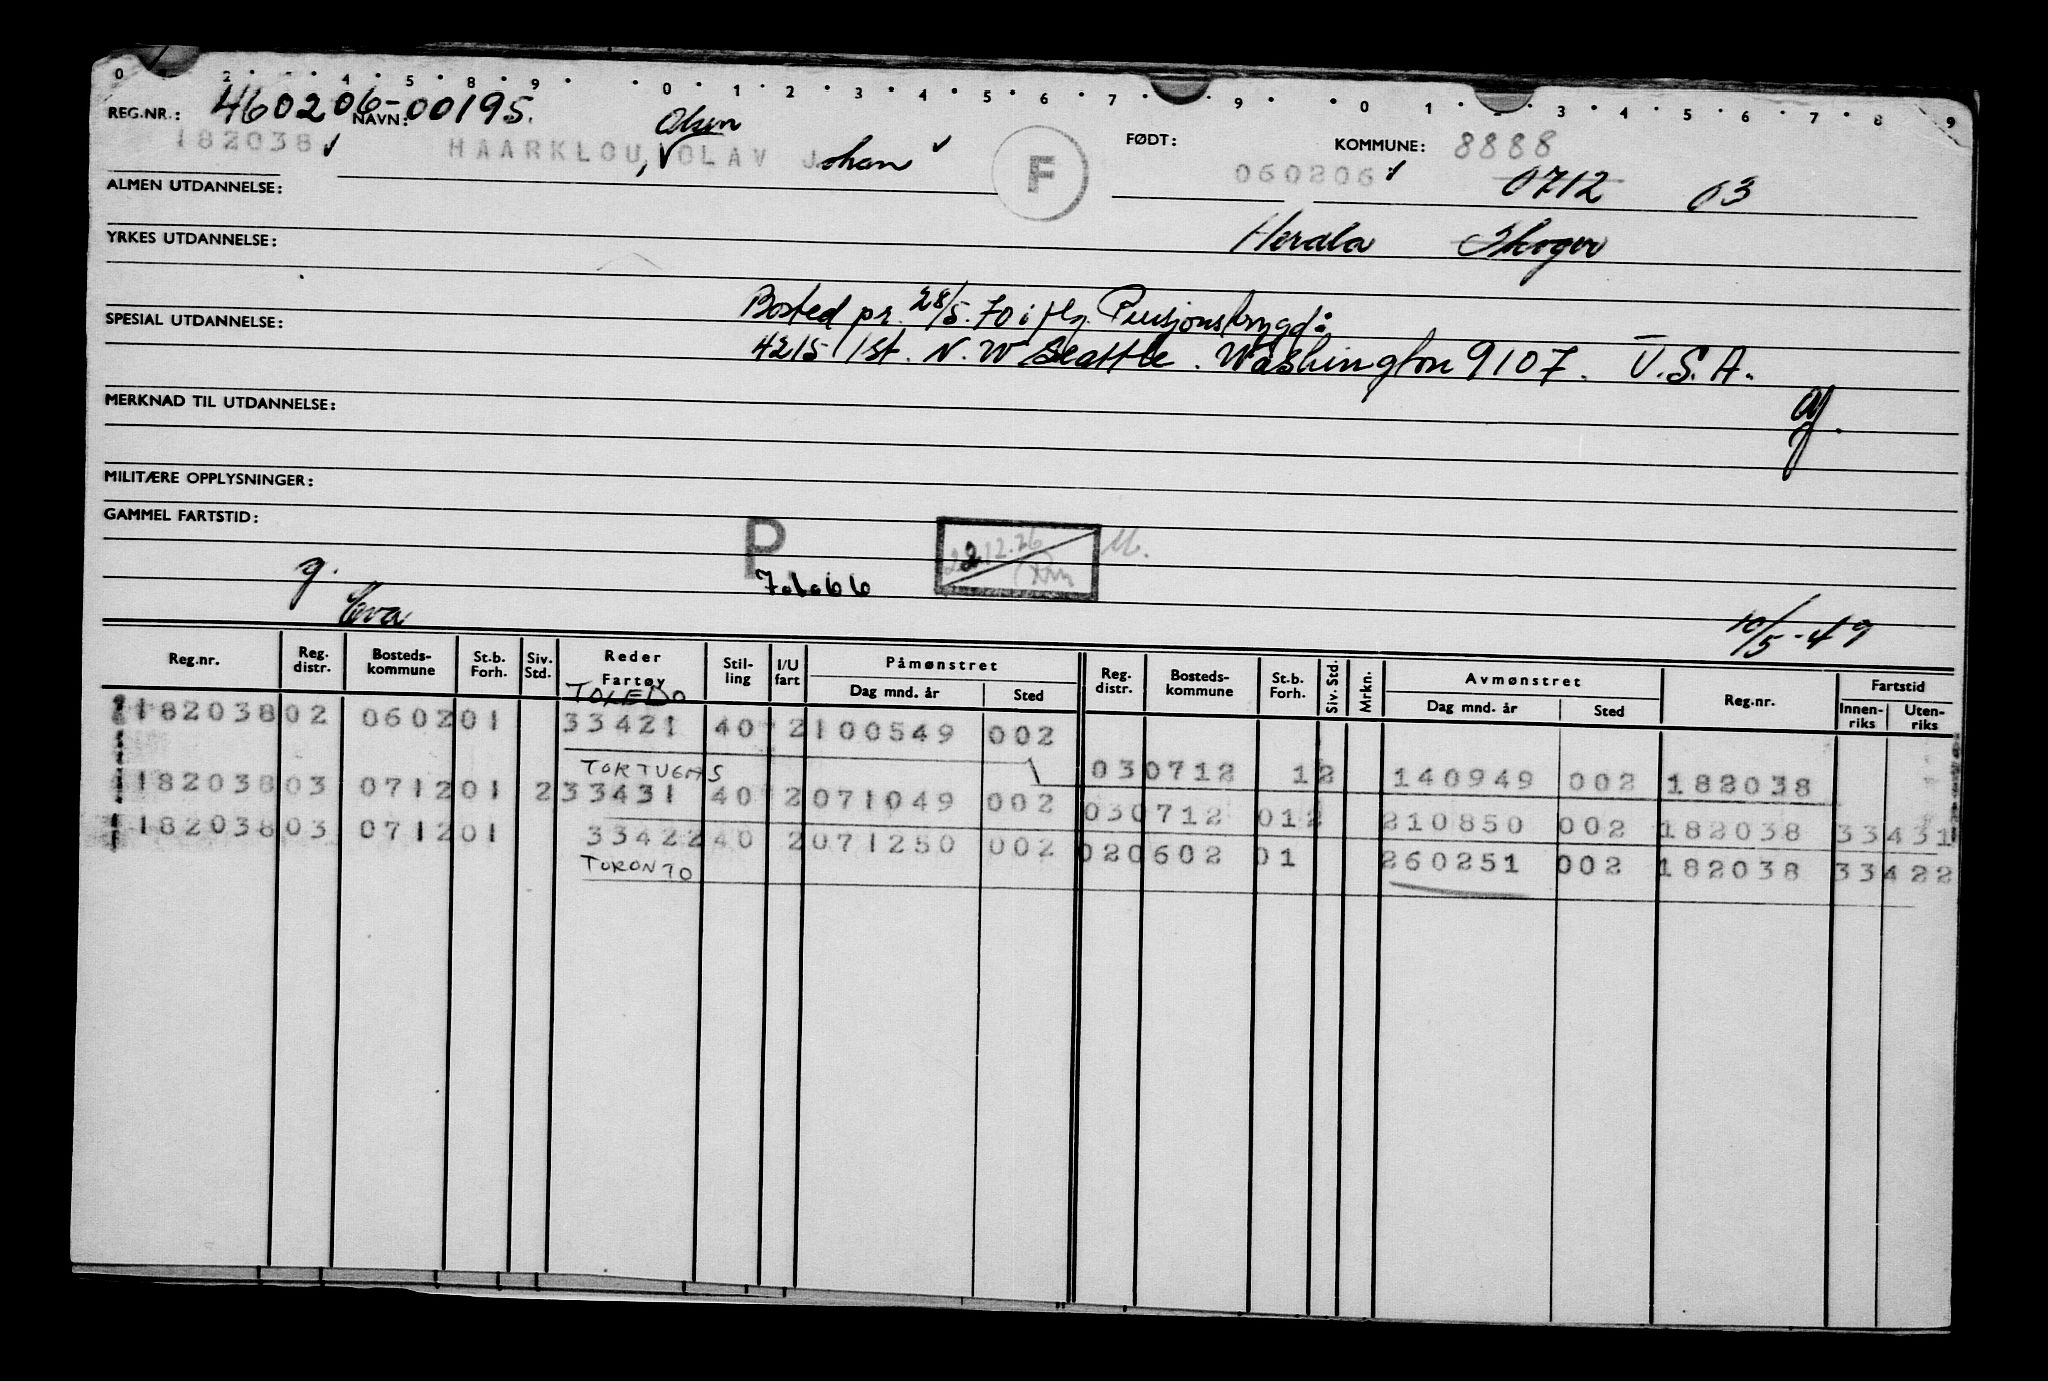 0 2 4 5 8 9 0 1 2 3 4 5 6 7 9 0 1 3 4 5 6 7 8 9
REG.NR.: 460206-00195. NAVN: Olsen FØDT: KOMMUNE: 8888
182038 HAARKLOU, OLAV Johan F 060206 0712 03
ALMEN UTDANNELSE:
YRKES UTDANNELSE: Herdla Skoger
Bosted pr. 28/5.70 i flg. Pensjonstrygd:
SPESIAL UTDANNELSE: 4215 1st. N.W Seattle. Washington 9107. U.S.A.
MERKNAD TIL UTDANNELSE:
MILITÆRE OPPLYSNINGER:
GAMMEL FARTSTID:
P 22.12.76
g. 7.1.66
Eva 10/5-49
Reg.nr. Reg. distr. Bosteds-kommune St.b. Forh. Siv. Std. Reder Fartøy Stil-ling I/U fart Påmønstret Dag mnd. år Sted Reg. distr. Bosteds-kommune St.b. Forh. Siv. Std. Mrkn. Avmønstret Dag mnd. år Sted Reg.nr. Fartstid Innen-riks Uten-riks
TOLEDO
182038 02 0602 01 33421 40 2 100549 002
TORTUGAS 03 0712 1 2 140949 002 182038
182038 03 0712 01 2 33431 40 2 071049 002 03 0712 01 2 210850 002 182038 33431
182038 03 0712 01 33422 40 2 071250 002 02 0602 01 260251 002 182038 33422
TORONTO